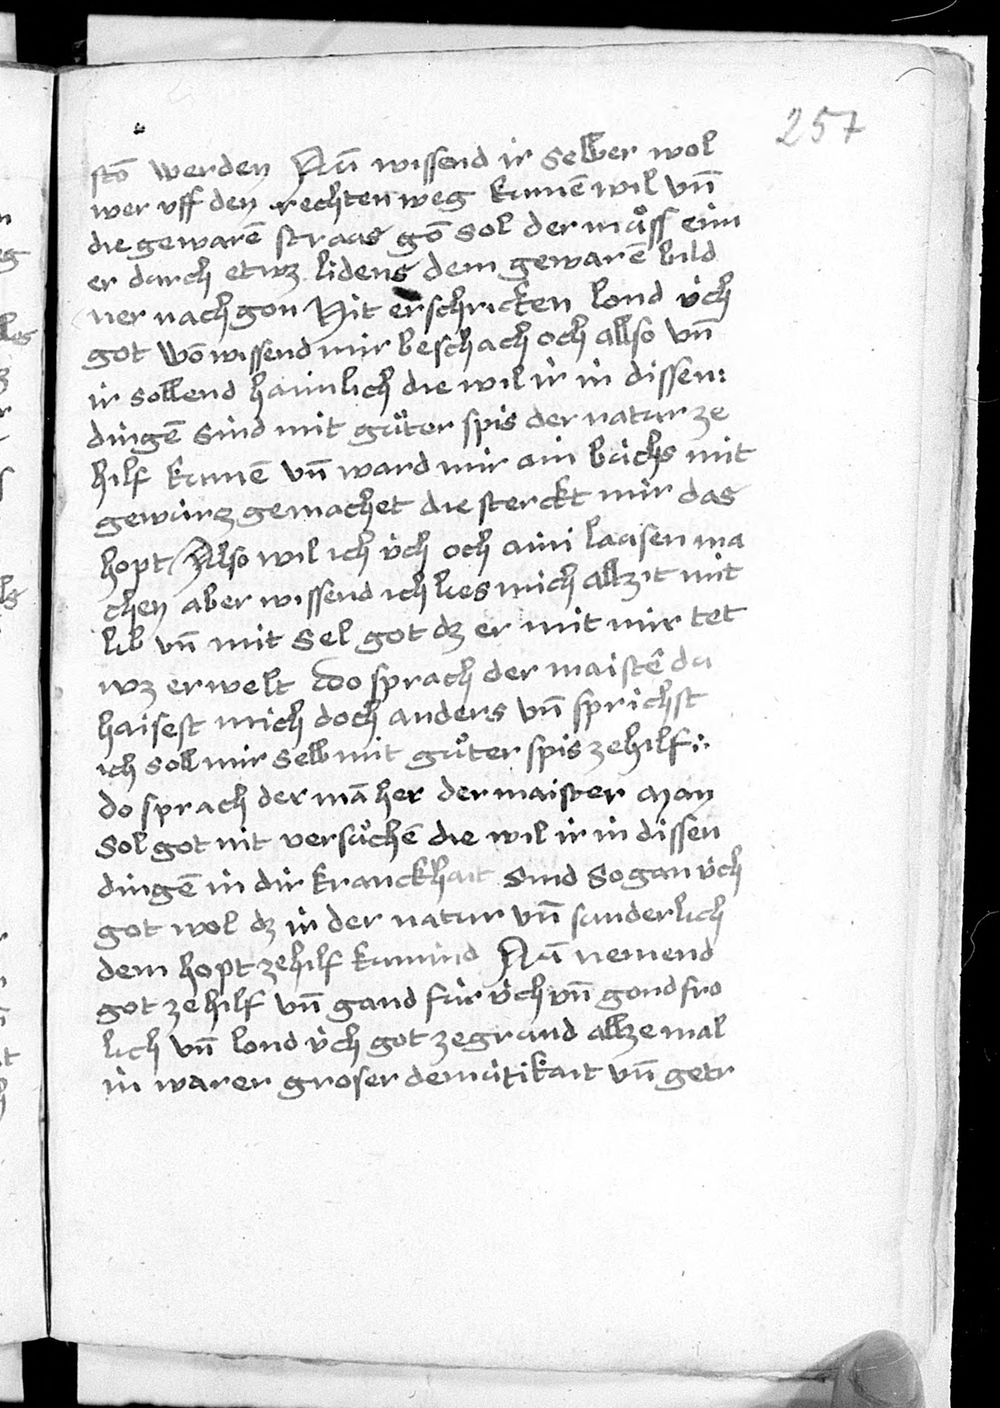 257
stō werden Nū wissend ir selber wol
wer vff den rechten weg kumē wil vn̄
die gewarē straas gō sol der můss eim
er durch etwz lidens dem gewarē bild
ner nach gon Nit erschricken lond v́ch
got wō wissend mir beschach och allso vn̄
ir sollend haimlich die wil ir in dissen:
dingē sind mit gůter spis der natur ze
hilf kumē vn̄ ward mir ain búchs mit
gewúrz gemachet die sterckt mir das
hopt Also wil ich v́ch och aini laasen ma
chen aber wissend ich lies mich allzit mit
lib vn̄ mit sel got dz er mit mir tet
wz er welt Do sprach der maistē du
haisest mich doch anders vn̄ sprichst
ich soll mir selb mit gůter spis ze hilf:
do sprach der mā her der maister Man
sol got nit versůchē die wil ir in dissen
dingē in dir kranckhait sind So gan v́ch
got wol dz ir der natur vn̄ sunderlich
dem hopt ze hilf kumind Nū nemend
got ze hilf vn̄ gand fúr v́ch vn̄ gond fro
lich vn̄ lond v́ch got ze grund allzemal
in warer groser demútikait vn̄ getr